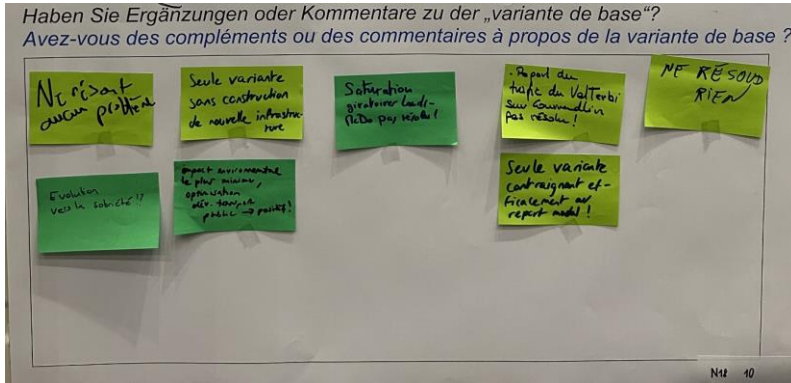 Haben Sie Ergänzungen oder Kommentare zu der „variante de base"?
Avez-vous des compléments ou des commentaires à propos de la variante de base ?
Ne résout
aucun problème
Seule variante
sans construction
de nouvelle infrastruc-
ture
Saturation
giratoire Landi-
McDo pas résolu!
- Report du
trafic du ValTerbi
sur Courrendlin
pas résolu!
NE RÉSOUD
RIEN
Evolution
vers la sobriété!!
impact environnemental
le plus minime,
optimisation
dév. transport
public → positif!
Seule variante
contraignant ef-
ficacement au
report modal!
N18 10